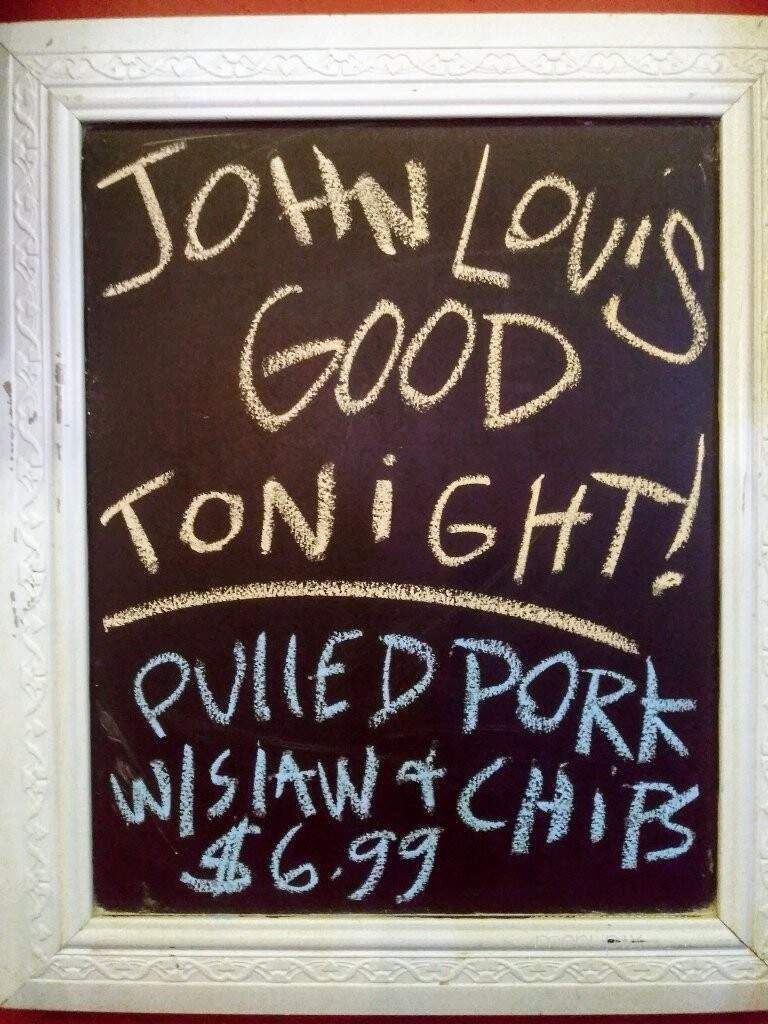 JOHN LOU'S
GOOD
TONiGHT!
PUllED PORK
W/SlAW & CHiPS
$6.99